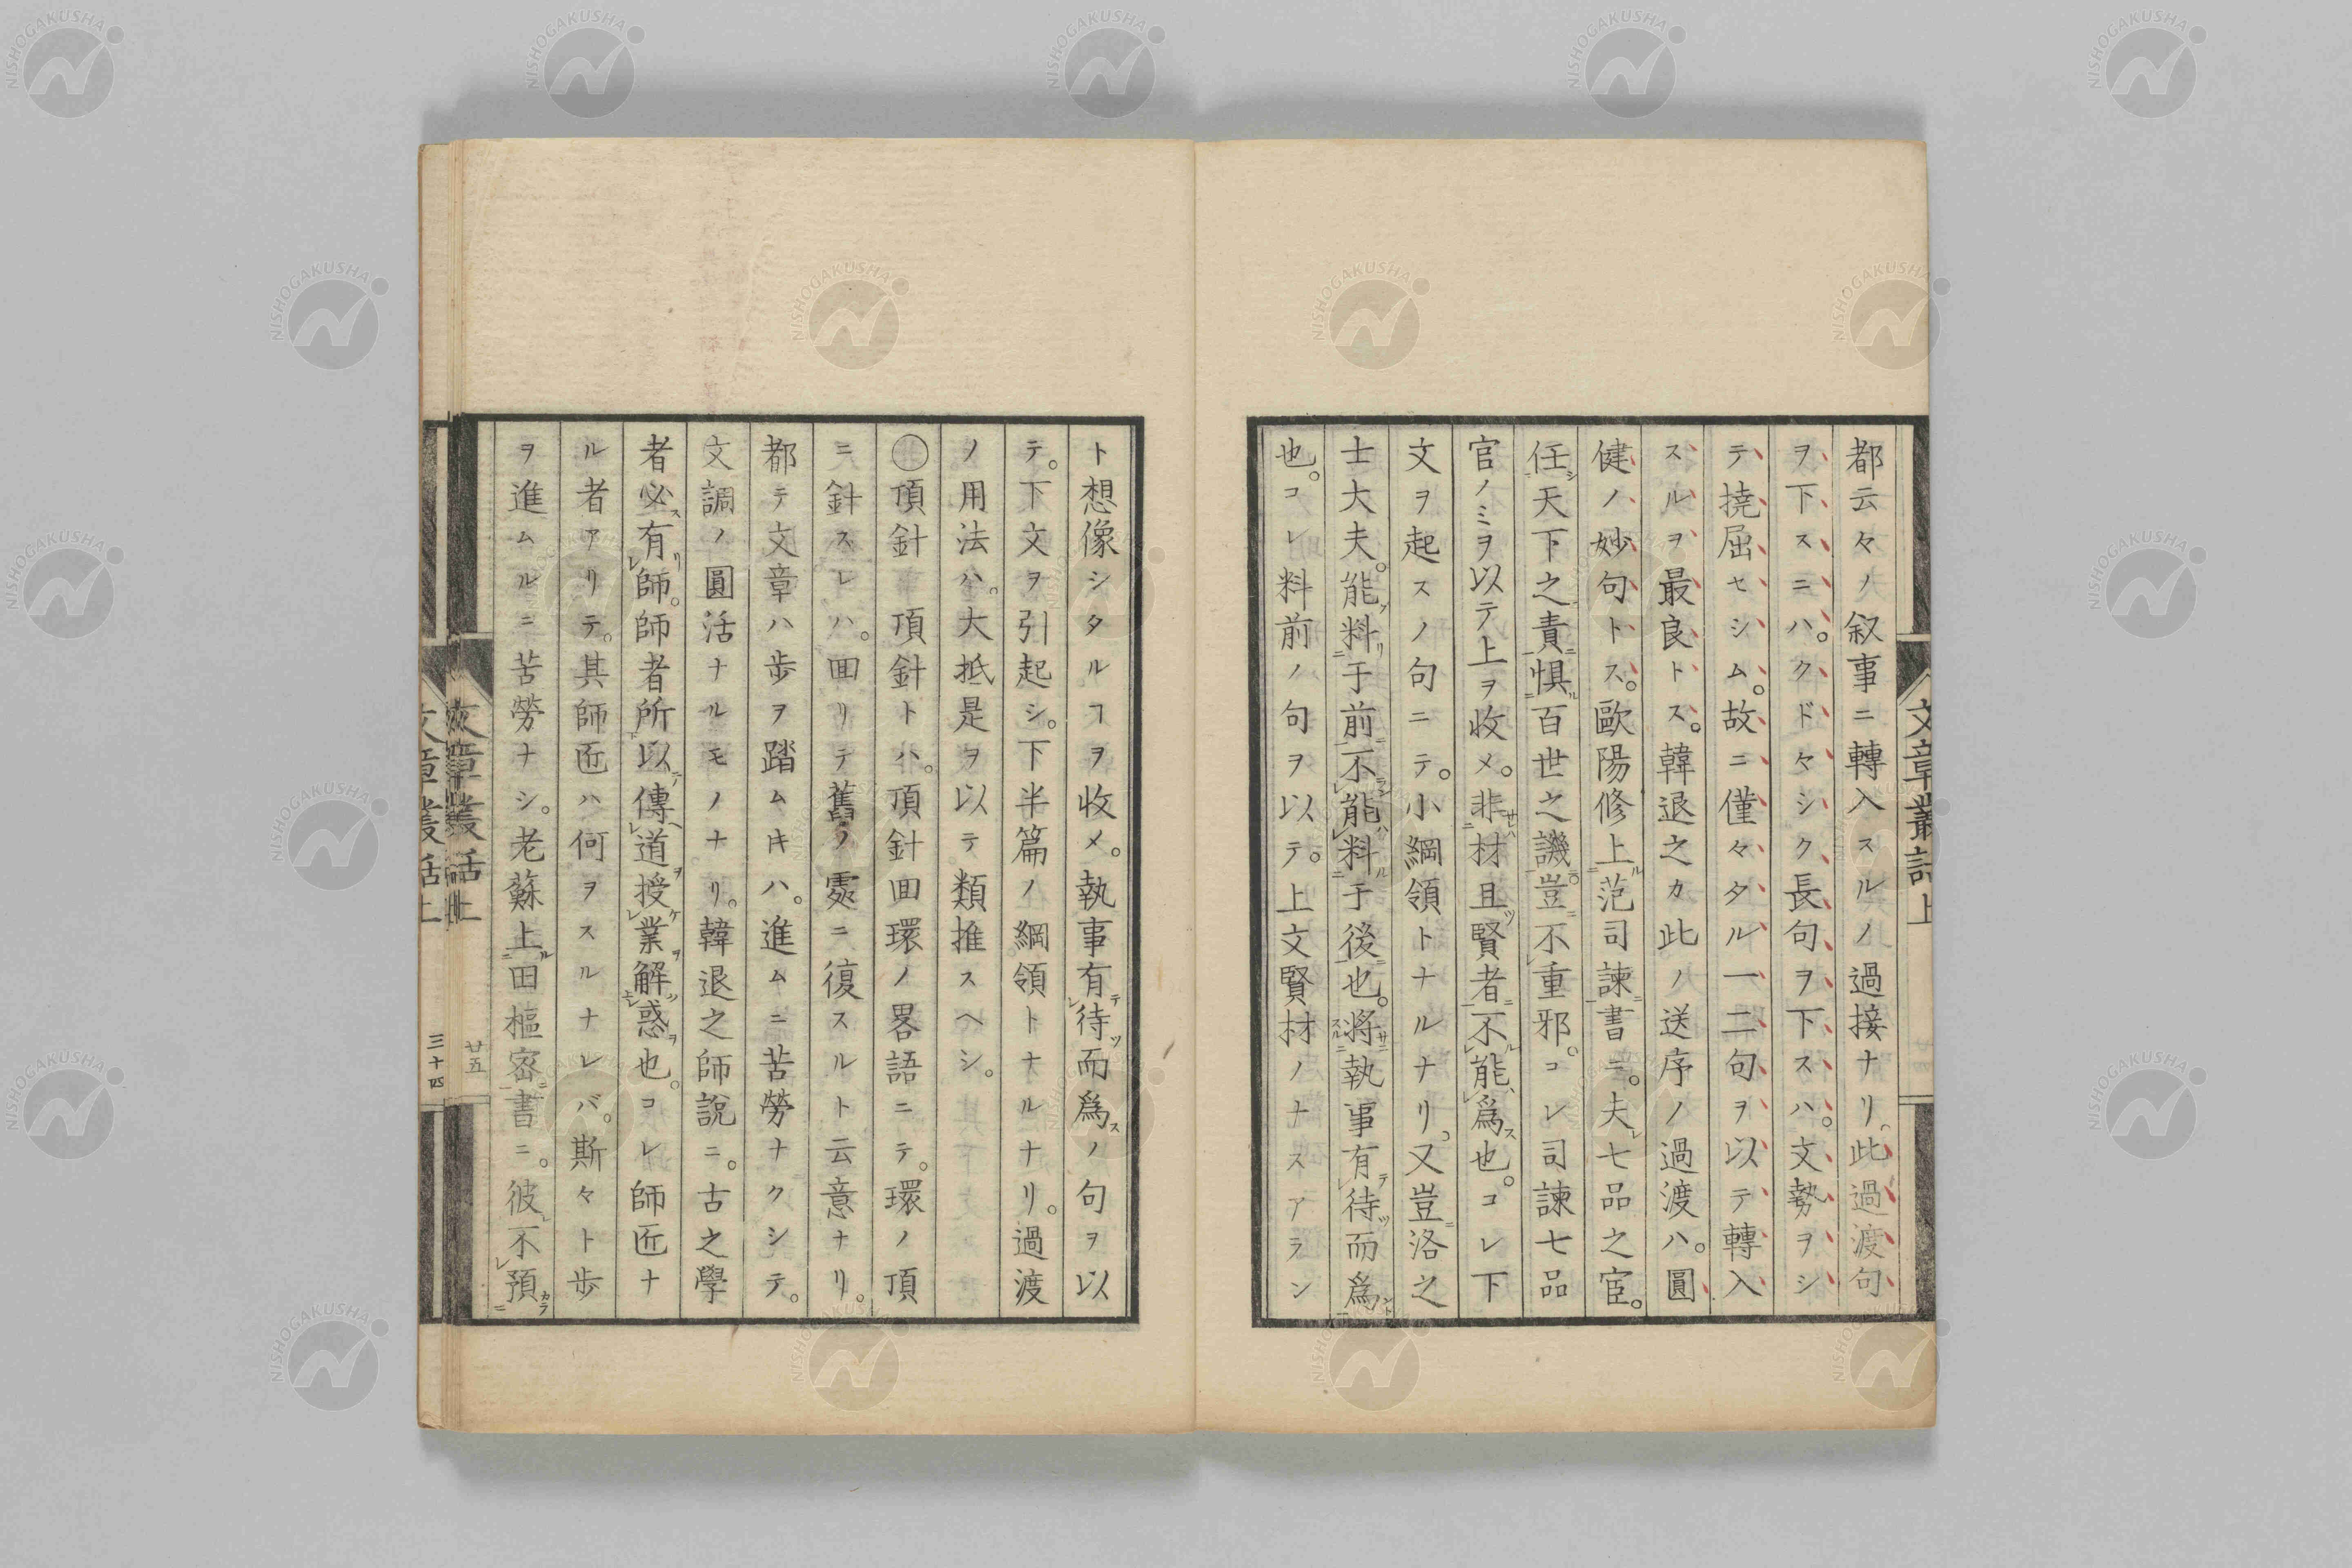 都云々ノ叙事ニ轉入スルノ過接ナリ。此過渡句
ヲ下スニハ。クドクシク長句ヲ下スハ。文勢ヲシ
テ撓屈セシム。故ニ僅々タル一二句ヲ以テ轉入
スルヲ最良トス。韓退之カ此ノ送序ノ過渡ハ。圓
健ノ妙句トス。歐陽修上范司諫書ニ。夫七品之官。
任天下之責懼百世之譏豈不重邪。コレ司諫七品
官ノミヲ以テ上ヲ收メ。非材且賢者不能爲也。コレ下
文ヲ起スノ句ニテ。小綱領トナルナリ。又豈洛之
士大夫。能料于前不能料于後也。將執事有待而爲
也。コレ料前ノ句ヲ以テ。上文賢材ノナスアラン
文章叢話上
ト想像シタルヿヲ收メ。執事有待而爲スノ句ヲ以
テ。下文ヲ引起シ。下半篇ノ綱領トナルナリ。過渡
ノ用法ハ。大抵是ヲ以テ類推スヘシ。
〇頂針 頂針トハ。頂針回環ノ畧語ニテ。環ノ頂
ニ針スレハ。回リテ舊ノ處ニ復スルト云意ナリ。
都テ文章ハ歩ヲ踏ムキハ。進ムニ苦勞ナクシテ。
文調ノ圓活ナルモノナリ。韓退之師說ニ。古之學
者必有師。師者所以傳道授業解惑也。コレ師匠ナ
ル者アリテ。其師匠ハ何ヲスルナレバ。斯々ト歩
ヲ進ムルニ苦勞ナシ。老蘇上田樞密書ニ。彼不預
文章叢話上
廿五
文章叢話上
三十四
NISHOGAKUSHA